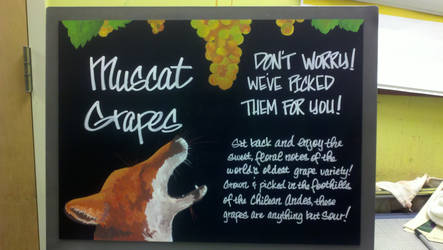 Muscat
Grapes
DON'T WORRY!
WE'VE PICKED
THEM FOR YOU!
Sit back and enjoy the
sweet, floral notes of the
world's oldest grape variety!
Grown & picked in the foothills
of the Chilean Andes, these
grapes are anything but Sour!